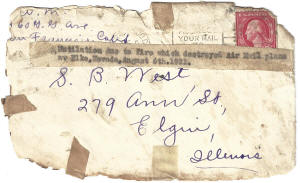 W. M.
San Francisco Calif.
YOUR MAIL
Mutilation due to fire which destroyed Air Mail plane
nr Elko, Nevada, August 6th. 1921.
S. B. West
279 Ann St,
Elgin,
Illinois